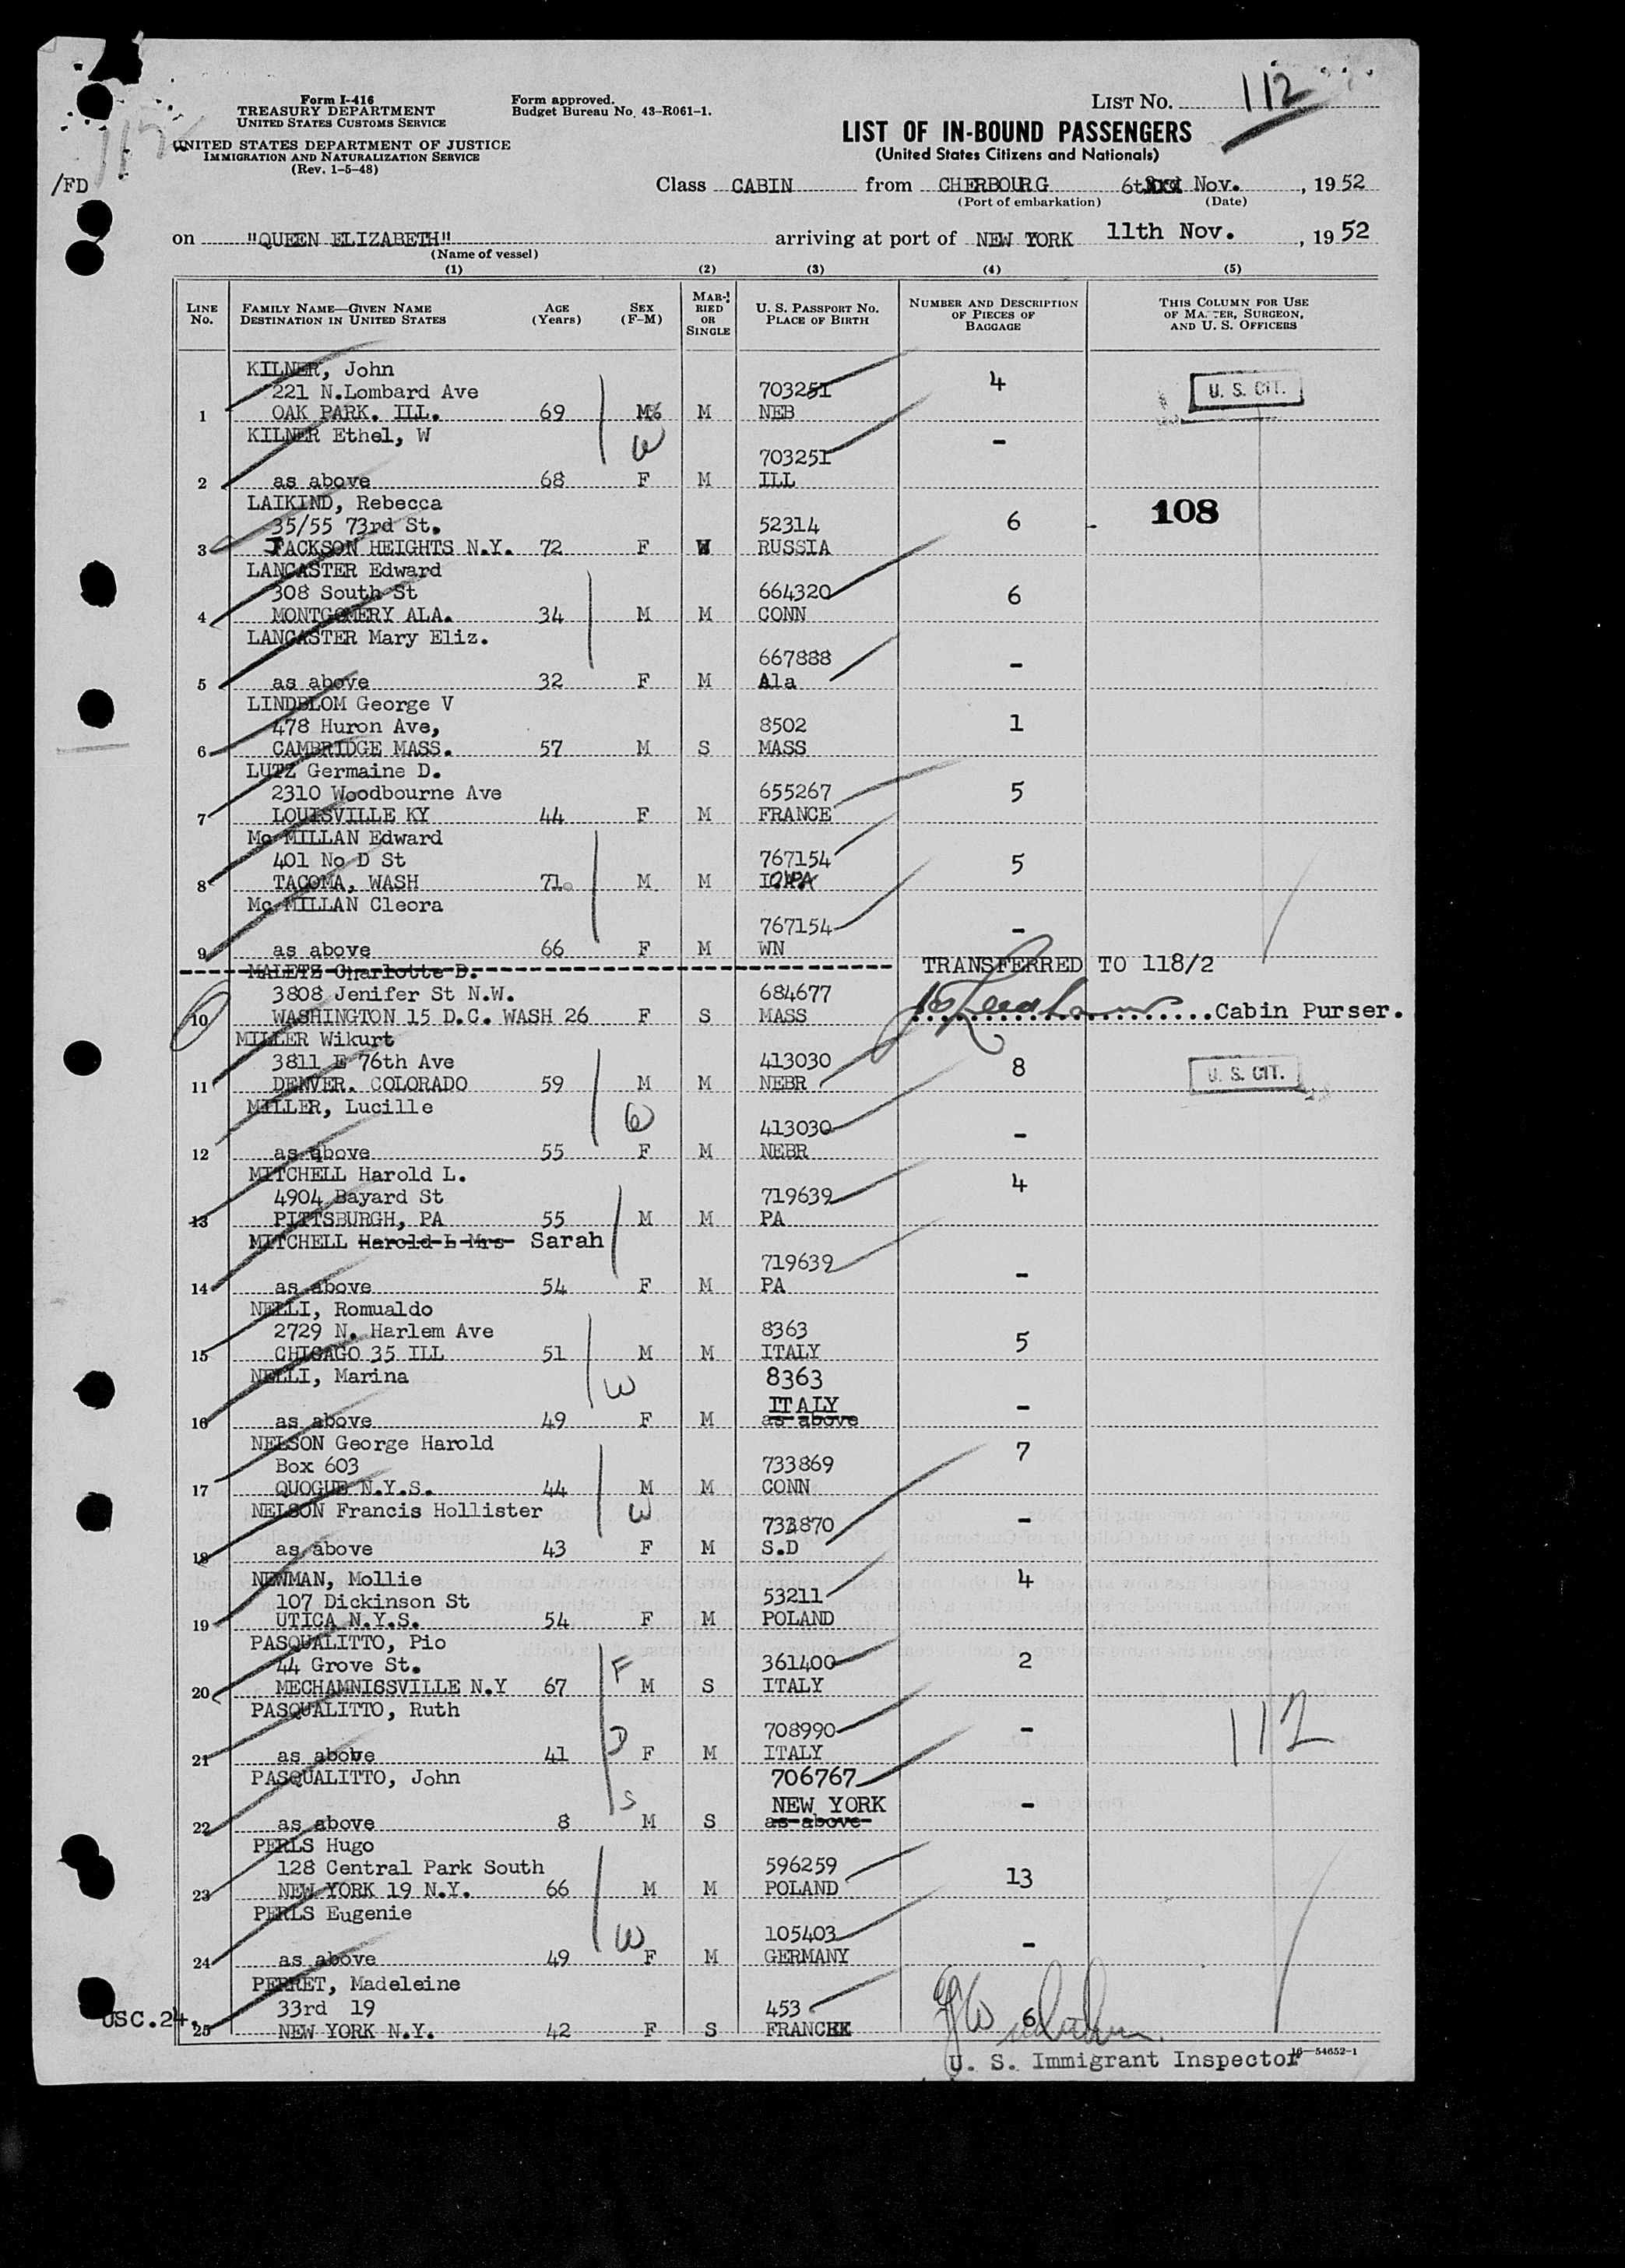 Form I-416
TREASURY DEPARTMENT
UNITED STATES CUSTOMS SERVICE
UNITED STATES DEPARTMENT OF JUSTICE
IMMIGRATION AND NATURALIZATION SERVICE
(Rev. 1-5-48)
Form approved.
Budget Bureau No. 43-R061-1.
LIST NO. 112
LIST OF IN-BOUND PASSENGERS
(United States Citizens and Nationals)
/FD
Class CABIN from CHERBOURG 6th Nov. , 1952
(Port of embarkation) (Date)
on "QUEEN ELIZABETH" arriving at port of NEW YORK 11th Nov. , 1952
(Name of vessel)
(1) (2) (3) (4) (5)
LINE NO. FAMILY NAME—GIVEN NAME DESTINATION IN UNITED STATES AGE (Years) SEX (F-M) MARRIED OR SINGLE U. S. PASSPORT NO. PLACE OF BIRTH NUMBER AND DESCRIPTION OF PIECES OF BAGGAGE THIS COLUMN FOR USE OF MASTER, SURGEON, AND U. S. OFFICERS
KILNER, John
221 N.Lombard Ave 703251 4 U. S. CIT.
1 OAK PARK. ILL. 69 M M NEB
KILNER Ethel, W W -
703251
2 as above 68 F M ILL
LAIKIND, Rebecca 108
35/55 73rd St. 52314 6
3 JACKSON HEIGHTS N.Y. 72 F W RUSSIA
LANCASTER Edward
308 South St 664320 6
4 MONTGOMERY ALA. 34 M M CONN
LANCASTER Mary Eliz.
667888 -
5 as above 32 F M Ala
LINDBLOM George V
478 Huron Ave, 8502 1
6 CAMBRIDGE MASS. 57 M S MASS
LUTZ Germaine D.
2310 Woodbourne Ave 655267 5
7 LOUISVILLE KY 44 F M FRANCE
Mc MILLAN Edward
401 No D St 767154 5
8 TACOMA, WASH 71 M M IOWA
Mc MILLAN Cleora
767154 -
9 as above 66 F M WN
MALETZ Charlotte D. TRANSFERRED TO 118/2
3808 Jenifer St N.W. 684677
10 WASHINGTON 15 D.C. WASH 26 F S MASS Cabin Purser.
MILLER Wikurt
3811 E 76th Ave 413030 8 U. S. CIT.
11 DENVER. COLORADO 59 M M NEBR
MILLER, Lucille W
413030 -
12 as above 55 F M NEBR
MITCHELL Harold L. 4
4904 Bayard St 719639
13 PITTSBURGH, PA 55 M M PA
MITCHELL Harold L Mrs Sarah
719639 -
14 as above 54 F M PA
NELLI, Romualdo
2729 N. Harlem Ave 8363 5
15 CHICAGO 35 ILL 51 M M ITALY
NELLI, Marina W 8363
ITALY -
16 as above 49 F M as above
NELSON George Harold 7
Box 603 733869
17 QUOGUE N.Y.S. 44 M M CONN
NELSON Francis Hollister W -
733870
18 as above 43 F M S.D
NEWMAN, Mollie 4
107 Dickinson St 53211
19 UTICA N.Y.S. 54 F M POLAND
PASQUALITTO, Pio
44 Grove St. F 361400 2
20 MECHAMNISSVILLE N.Y 67 M S ITALY
PASQUALITTO, Ruth 112
D 708990 -
21 as above 41 F M ITALY
PASQUALITTO, John 706767
S NEW YORK -
22 as above 8 M S as above
PERLS Hugo
128 Central Park South 596259 13
23 NEW YORK 19 N.Y. 66 M M POLAND
PERLS Eugenie
W 105403 -
24 as above 49 F M GERMANY
PERRET, Madeleine
33rd 19 453 6
USC.24. 25 NEW YORK N.Y. 42 F S FRANCE
U. S. Immigrant Inspector 16—54652-1